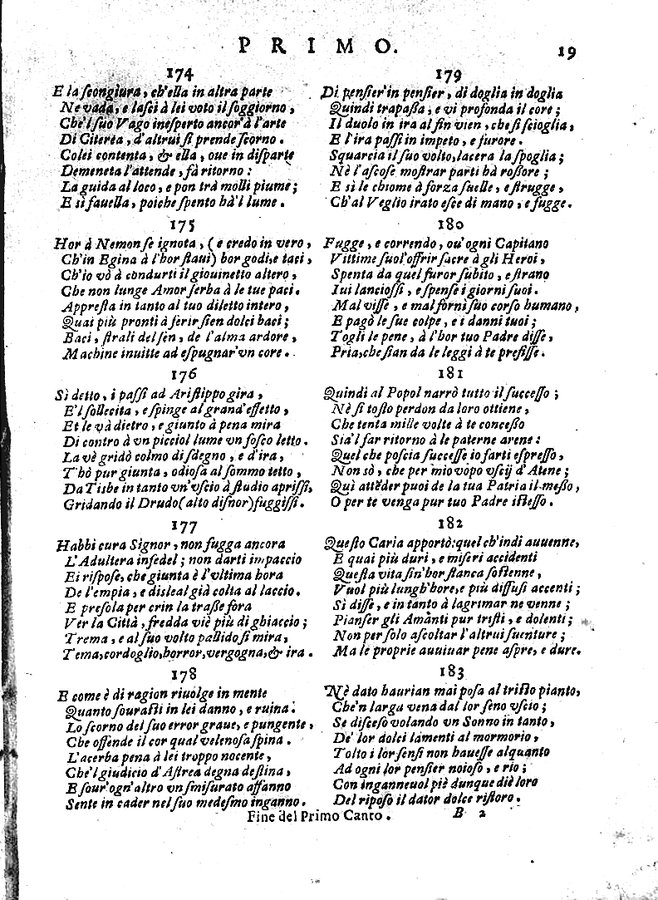 PRIMO.
19
174
E la scongiura, ch'ella in altra parte
Ne vada, e lasci à lei voto il soggiorno,
Che'l suo Vago inesperto ancor'à l'arte
Di Citerea, d'altrui si prende scorno.
Colei contenta, & ella, oue in disparte
Demeneta l'attende, fà ritorno:
La guida al loco, e pon trà molli piume;
E sì fauella, poiche spento hà'l lume.
175
Hor à Nemon se ignota, (e credo in vero,
Ch'in Egina à l'hor staui) hor godi, e taci,
Ch'io vò à condurti il giouinetto altero,
Che non lunge Amor serba à le tue paci.
Appresta in tanto al tuo diletto intero,
Quai più pronti à ferir sien dolci baci;
Baci, strali del sen, de l'alma ardore,
Machine inuitte ad espugnar'vn core.
176
Sì detto, i passi ad Aristippo gira,
E'l sollecita, e spinge al grand'effetto,
Et le và dietro, e giunto à pena mira
Di contro à vn picciol lume vn fosco letto.
La vè gridò colmo di sdegno, e d'ira,
T'hò pur giunta, odiosa al sommo tetto,
Da Tisbe in tanto vn'vscio à studio aprissi,
Gridando il Drudo (alto disnor) fuggissi.
177
Habbi cura Signor, non fugga ancora
L'Adultera infedel; non darti impaccio
Ei rispose, che giunta è l'vltima hora
De l'empia, e disleal già colta al laccio.
E presola per crin la trasse fora
Ver la Città, fredda viè più di ghiaccio;
Trema, e al suo volto pallido si mira,
Tema, cordoglio, horror, vergogna, & ira.
178
E come è di ragion riuolge in mente
Quanto sourasti in lei danno, e ruina.
Lo scorno del suo error graue, e pungente,
Che offende il cor qual velenosa spina.
L'acerba pena à lei troppo nocente,
Che'l giudicio d'Astrea degna destina,
E sour'ogn'altro vn smisurato affanno
Sente in cader nel suo medesmo inganno.
179
Di pensier'in pensier, di doglia in doglia
Quindi trapassa, e vi profonda il core;
Il duolo in ira al fin vien, che si scioglia,
E l'ira passi in impeto, e furore.
Squarcia il suo volto, lacera la spoglia;
Nè l'ascose mostrar parti hà rossore;
E sì le chiome à forza suelle, e strugge,
Ch'al Veglio irato esce di mano, e fugge.
180
Fugge, e correndo, ou'ogni Capitano
Vittime suol'offrir sacre à gli Heroi,
Spenta da quel furor subito, e strano
Iui lanciossi, e spense i giorni suoi.
Mal visse, e mal fornì suo corso humano,
E pagò le sue colpe, e i danni tuoi;
Togli le pene, à l'hor tuo Padre disse,
Pria, che sian da le leggi à te prefisse.
181
Quindi al Popol narrò tutto il successo;
Nè sì tosto perdon da loro ottiene,
Che tenta mille volte à te concesso
Sia'l far ritorno à le paterne arene:
Quel che poscia successe io farti espresso,
Non sò, che per mio vopo vscij d'Atene;
Qui attēder puoi de la tua Patria il messo,
O per te venga pur tuo Padre istesso.
182
Questo Caria apportò: quel ch'indi auuenne,
E quai più duri, e miseri accidenti
Questa vita sin'hor stanca sostenne,
Vuol più lungh'hore, e più diffusi accenti;
Sì disse, e in tanto à lagrimar ne venne;
Pianser gli Amanti pur tristi, e dolenti;
Non per solo ascoltar l'altrui suenture;
Ma le proprie auuiuar pene aspre, e dure.
183
Nè dato haurian mai posa al tristo pianto,
Che'n larga vena dal lor seno vscio;
Se disceso volando vn Sonno in tanto,
De' lor dolci lamenti al mormorio,
Tolto i lor sensi non hauesse alquanto
Ad ogni lor pensier noioso, e rio;
Con inganneuol piè dunque diè loro
Del riposo il dator dolce ristoro.
Fine del Primo Canto.
B 2